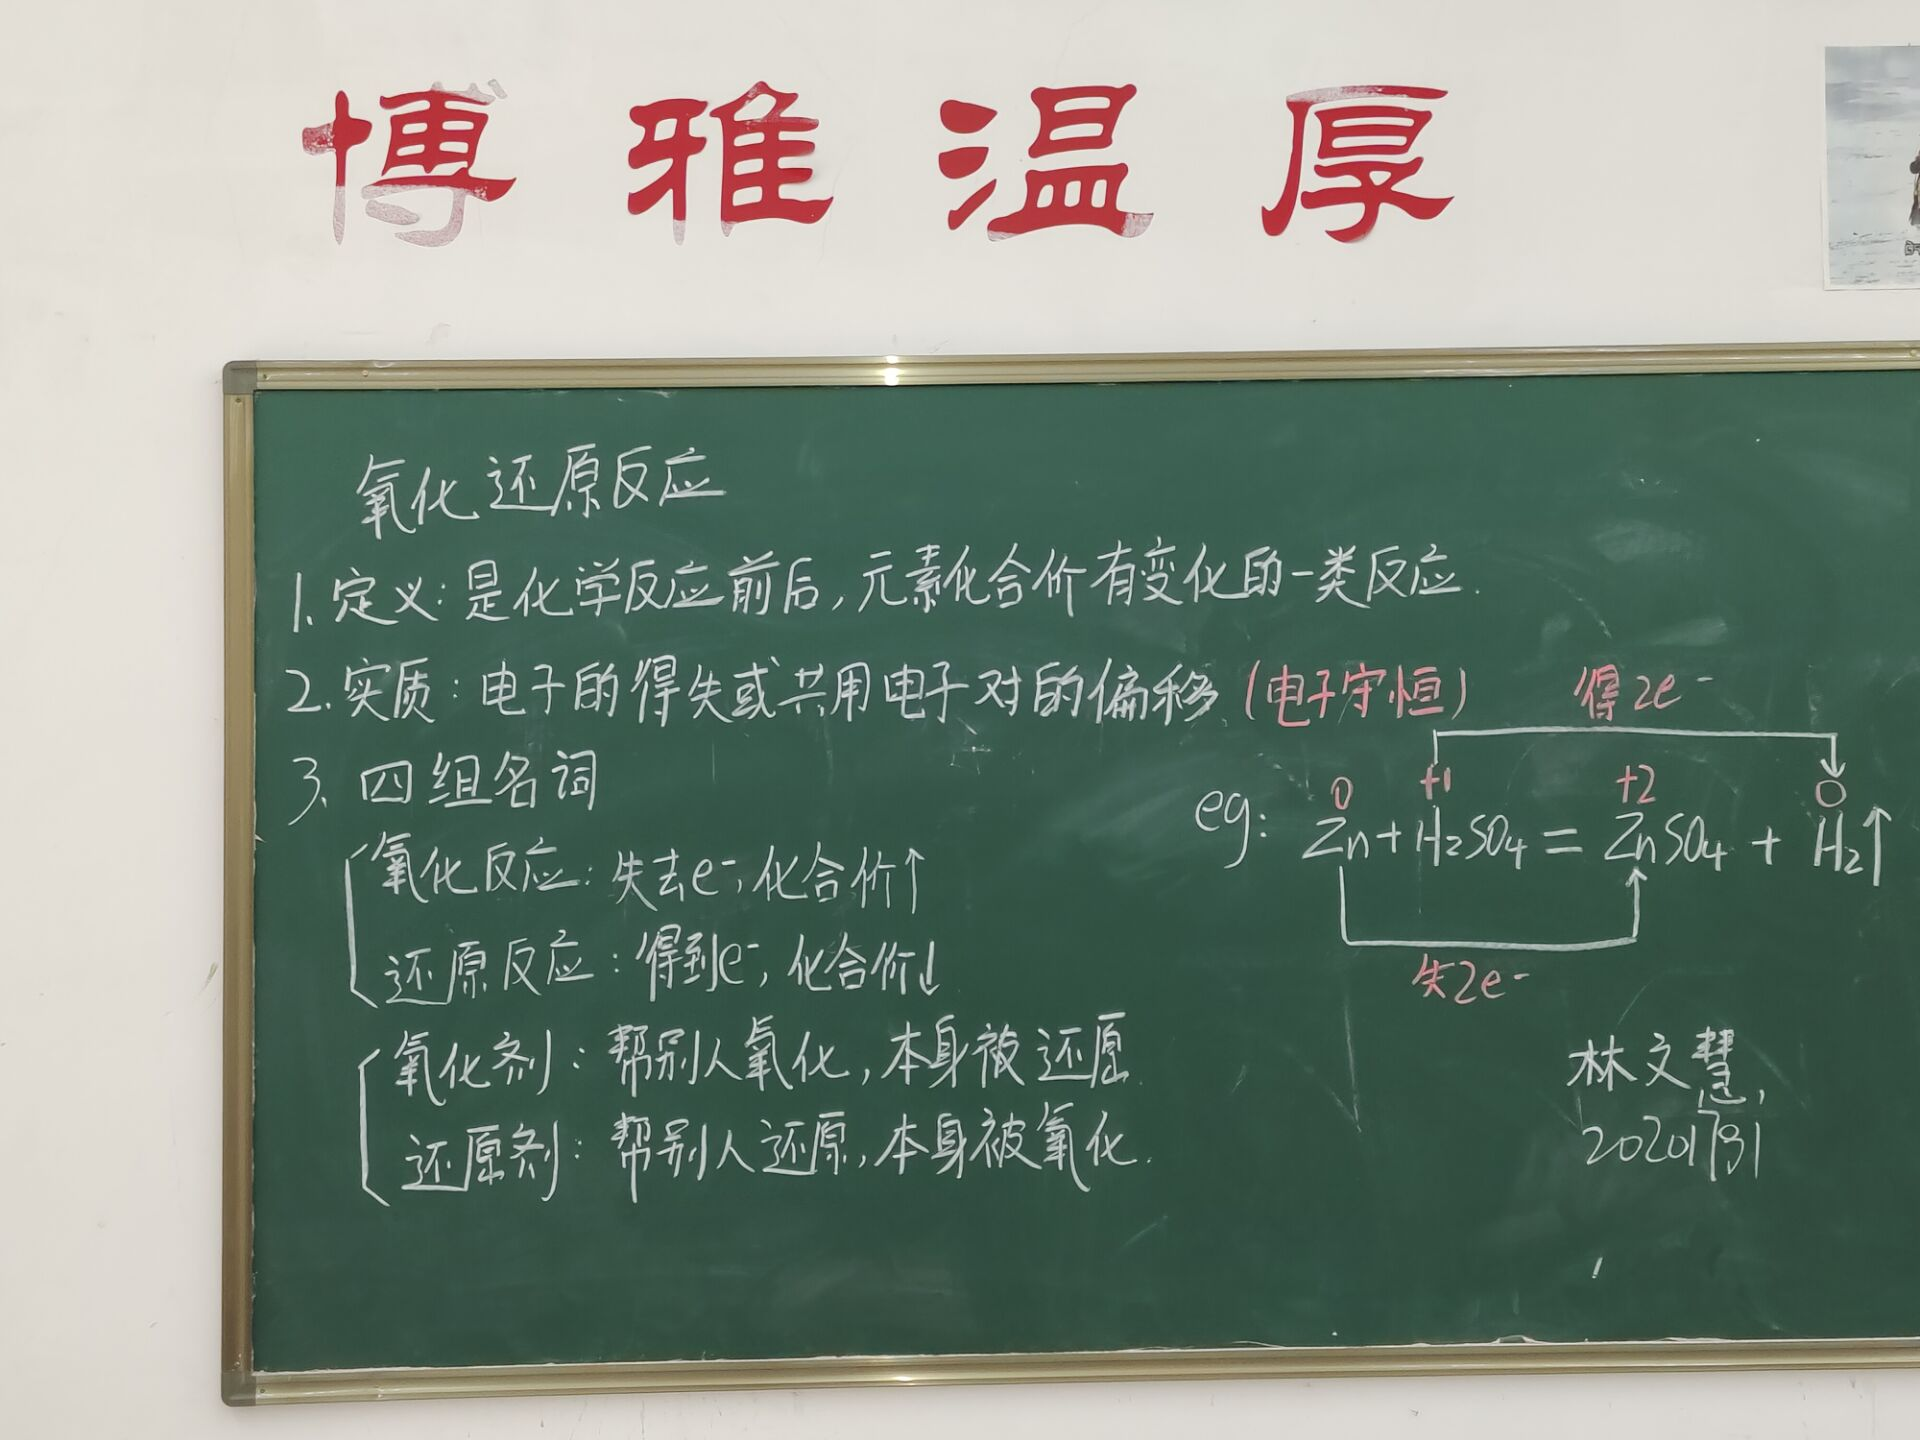 博雅温厚
氧化还原反应
1.定义:是化学反应前后,元素化合价有变化的一类反应.
2.实质:电子的得失或共用电子对的偏移(电子守恒)
得2e⁻
3.四组名词
0 +1 +2 0
eg: Zn+H₂SO₄=ZnSO₄+H₂↑
氧化反应:失去e⁻,化合价↑
还原反应:得到e⁻,化合价↓
失2e⁻
氧化剂:帮别人氧化,本身被还原.
还原剂:帮别人还原,本身被氧化.
林文慧,
20201731